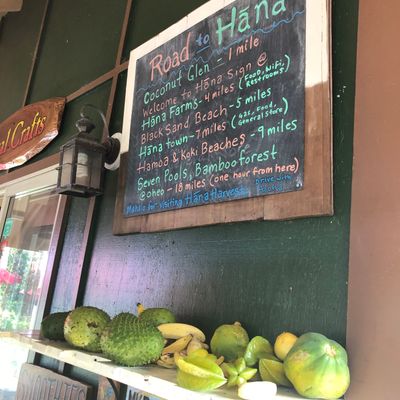 Road to Hāna
Coconut Glen - 1 mile
Welcome to Hāna Sign @
Hāna Farms - 4 miles (Food, WiFi, Restrooms)
Black Sand Beach - 5 miles
Hāna town - 7 miles (gas, Food, General Store)
Hamoa & Koki Beaches - 9 miles
Seven Pools, Bamboo forest
@oheo - 18 miles (one hour from here)
Mahalo for visiting Hāna Harvest
Drive with Aloha
al Crafts